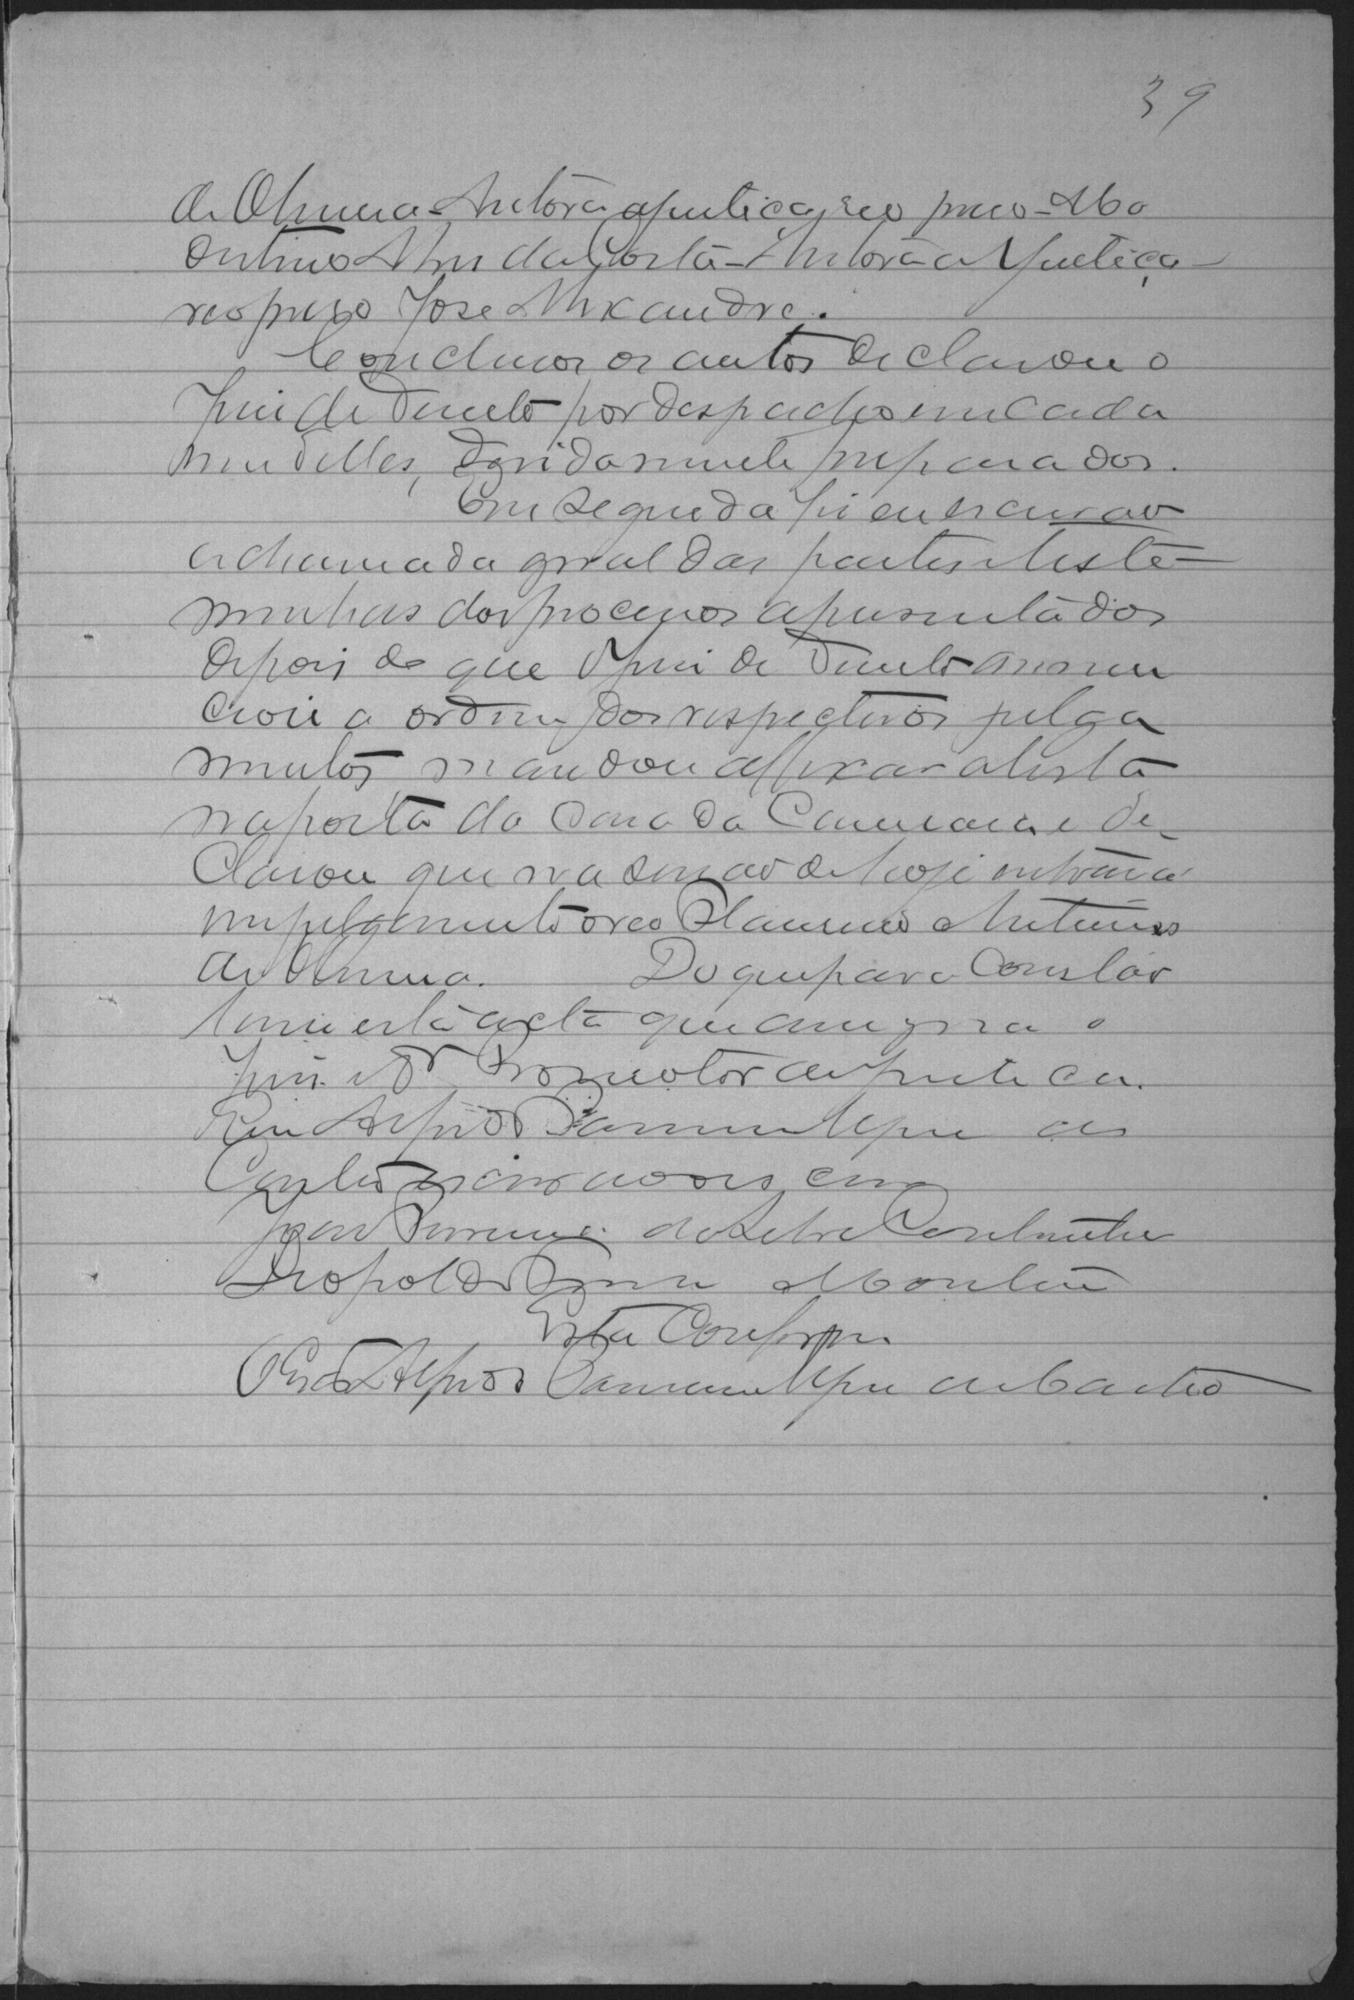 39
de Oliveira - Autora a justiça, reo preso - Mo
destino Alves da Costa - Autora a Justiça -
reo preso José Alexandre.
Conclusos os autos declarou o
Juiz de Direito por despacho em cada
um delles, devidamente preparados.
Em seguida fiz eu escrivão
a chamada geral das partes e teste-
munhas dos processos apresentados
depois do que o Juiz de Direito annun
ciou a ordem dos respectivos julga
mentos mandou affixar a lista
na porta da Casa da Camara e de-
clarou que na sessão de hoje entrará
em julgamento o reo Antunes
de Oliveira. Do que para constar
lavrei esta acta que assigna o
Juiz e Dr Promotor de justiça.
Eu Alfredo de
Castro escrivão o escrevi
João da Silva
Leopoldo Monteiro
Está Conforme
O Escrivão Alfredo de Castro